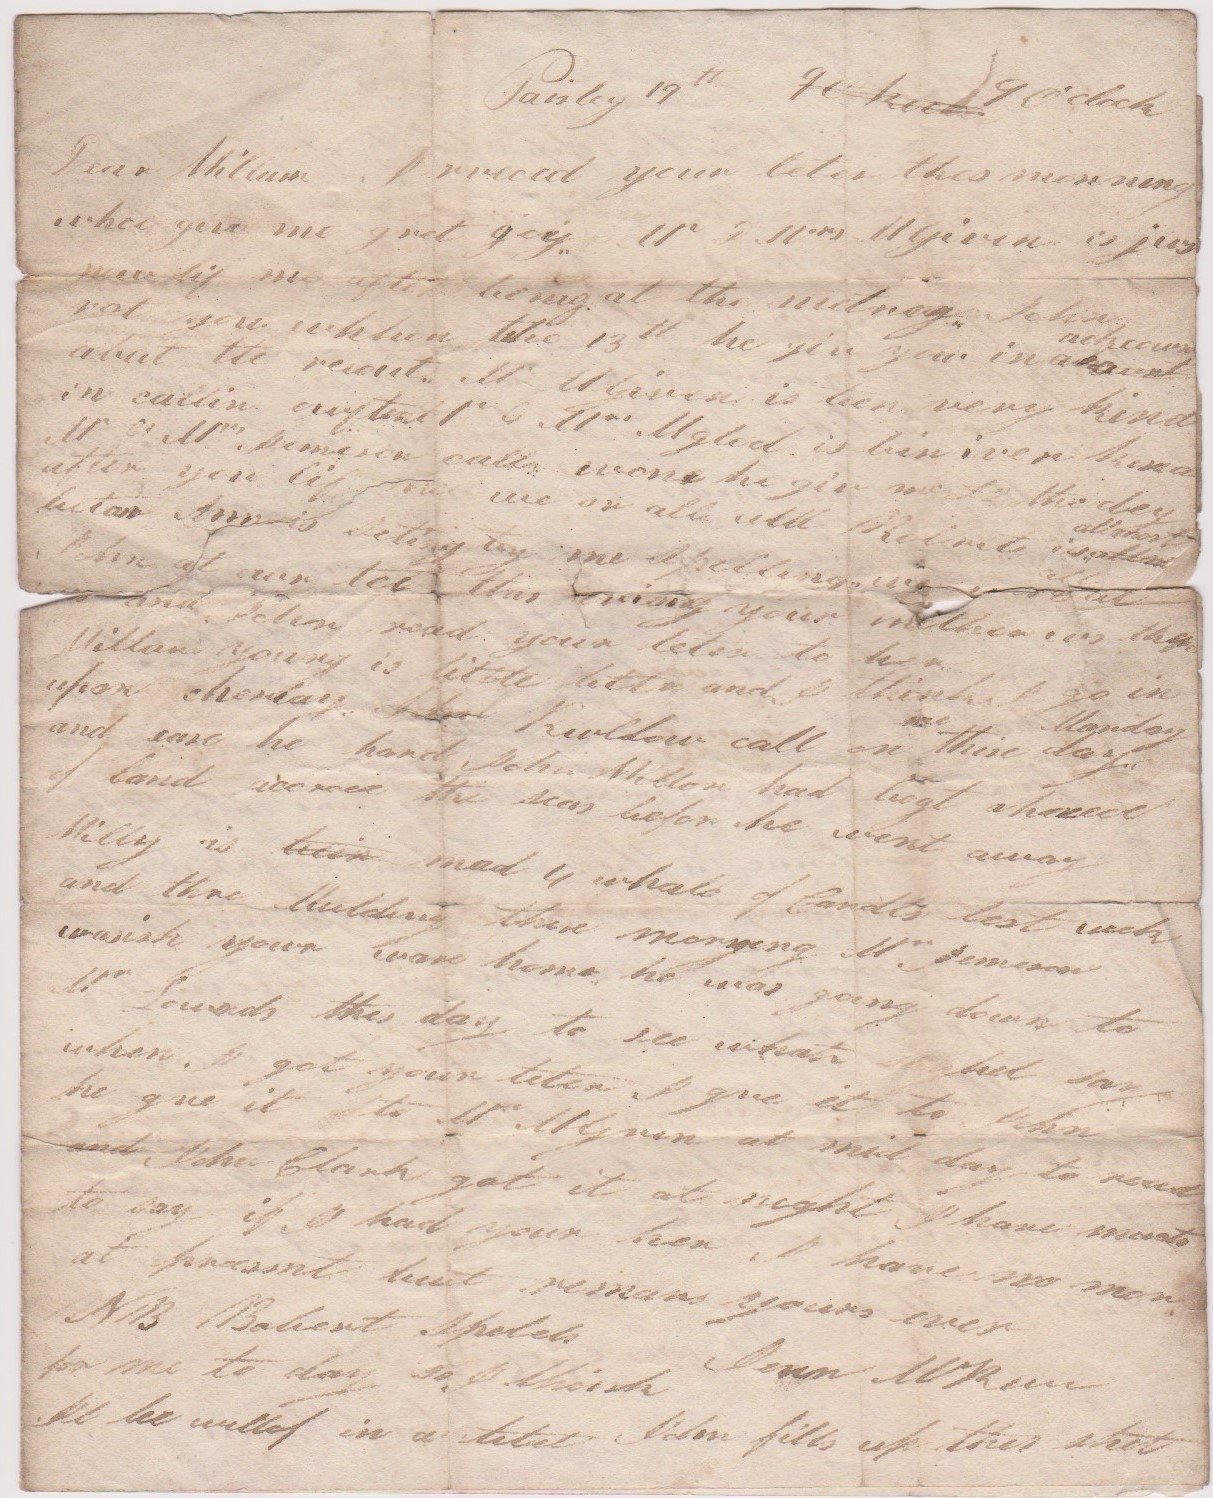 Paisley 19th 9 O'clock
Dear William . I rreced your leter thes mornning
whee give me gret goiy,, Mr & Mrs MGiven is jus
now lif me after being at the metnog,, John
rot you whhen the 13th he giv you in acheount
abut the . Mr MGiven is been very kind
in callin Mr & Mrs Mgled is bin iver kind
Mr & Mrs Jemieson calls wonc he giv me the dey
after you lif me we or all will Robrte is allmost
betar Ann is seting by me spelling,, we all
John at our tee this ivning your mother was ther
and John read your leter to her
Millan young is little bettr and I think I go in
upon Monday
call on me thire day,,
and sase he hard John Millar had bogt
of land the seas befor he went away
Willy is mad 4 whals of Cardts lest wek
and thre Mulding there morgneng Mr Jemeson
warish your ware home he was going down to
Mr Lounds thes day to see whatr hed say
when I got your leter I gve it to John
he gve it to Mr MGven at mid day to read
and John Clark got it at neght I have muets
to say if I had your her I have no mor
at present but remans yours ever
NB Robert spelels Jenn McKun
for me to day so I think
Il be in a leter John fills up thes shet